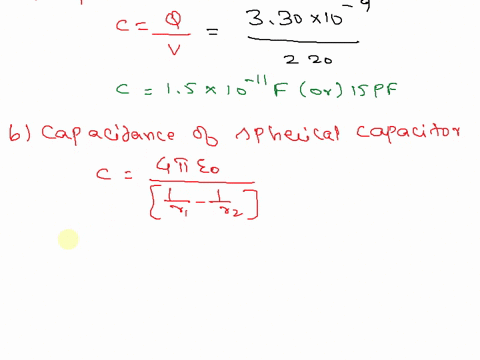 C = Q / V = 3.30 × 10⁻⁹ / 220
C = 1.5 × 10⁻¹¹ F (or) 15 PF
b) Capacidance of spherical capacitor
C = 4π ε₀ / [1/r₁ - 1/r₂]